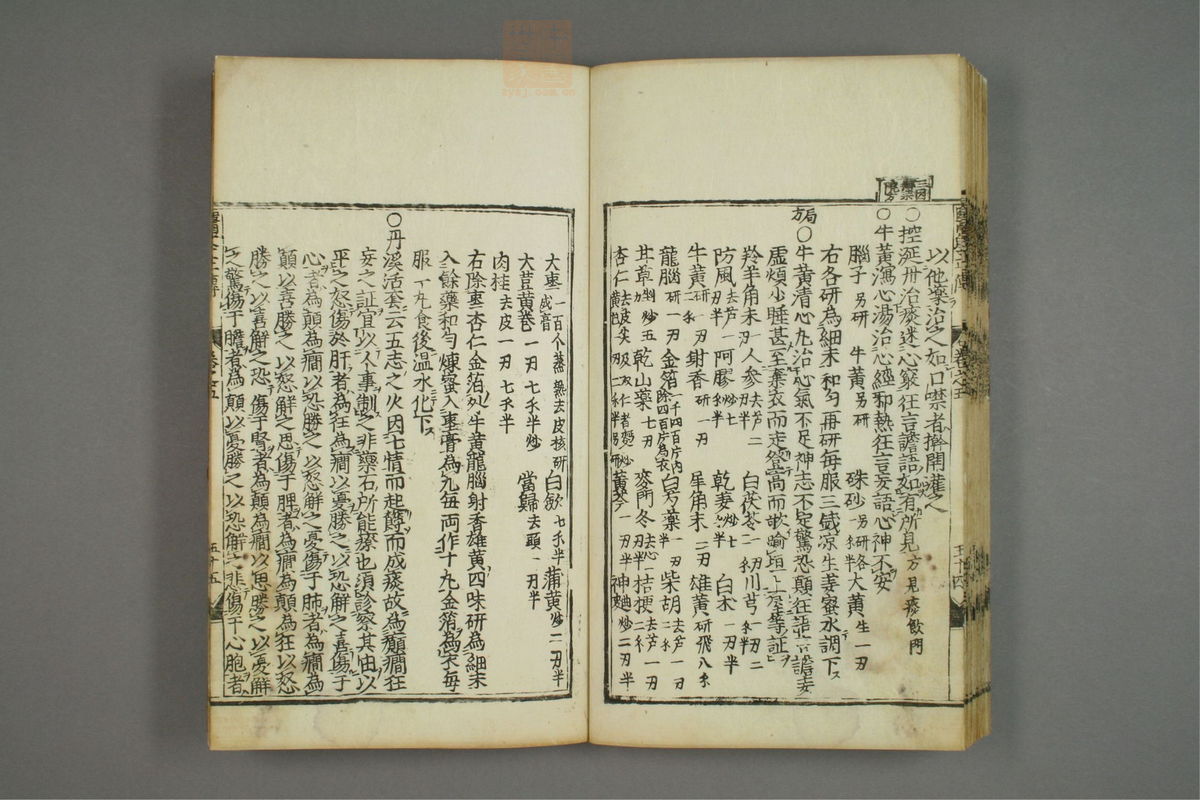 以他藥治之如口噤者斡開灌之
○控涎丹治痰迷心竅狂言譫語如有所見方見痰飲門
○牛黃瀉心湯治心經邪熱狂言妄語心神不安
腦子另研 牛黃另研 硃砂另研各 大黃生一刃
右各研為細末和勻再研每服三戔凉生姜蜜水調下
局方○牛黃清心丸治心氣不足神志不定驚恐顛狂語言譫妄
虛煩少睡甚至棄衣而走登高而歌踰垣上屋等証
羚羊角末一刃 人參去芦二 白茯苓 川芎
防風去芦一刃半 阿膠 乾姜 白朮一刃半
牛黃研一刃二 射香研一刃 犀角末二刃 雄黃研飛八
龍腦研一刃 金箔一千四百片內除四百片為衣 白芍藥一刃半 柴胡去芦一刃
甘草炒五 乾山藥七刃 麥門冬去心一刃半 桔梗去芦一刃
杏仁 黃芩一刃半 神麯炒二刃半
大棗一百个蒸熟去皮核研成膏 白歛 蒲黃炒二刃半
大荳黃卷一刃 當歸去頭一刃半
肉桂去皮一刃
右除棗杏仁金箔列牛黃龍腦射香雄黃四味研為細末
入餘藥和勻煉蜜入棗膏為丸每両作十丸金箔為衣每
服一丸食後温水化下
○丹溪活套云五志之火因七情而起欝而成痰故為癲癇狂
妄之証宜以人事制之非藥石所能療也須診察其由以
平之怒傷於肝者為狂為癇以憂勝之以恐解之喜傷于
心者為顛為癇以恐勝之以怒解之憂傷于肺者為癇為
顛以喜勝之以怒解之思傷于脾者為癇為顛為狂以怒
勝之以喜解之恐傷于腎者為顛為癇以思勝之以憂解
之驚傷于膽者為顛以憂勝之以恐解之悲傷于心胞者
五十四
五十五